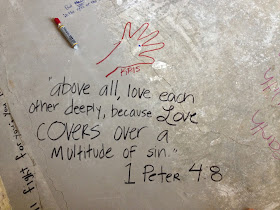 "above all, love each
other deeply, because Love
COVERS over a
Multitude of sin."
1 Peter 4:8